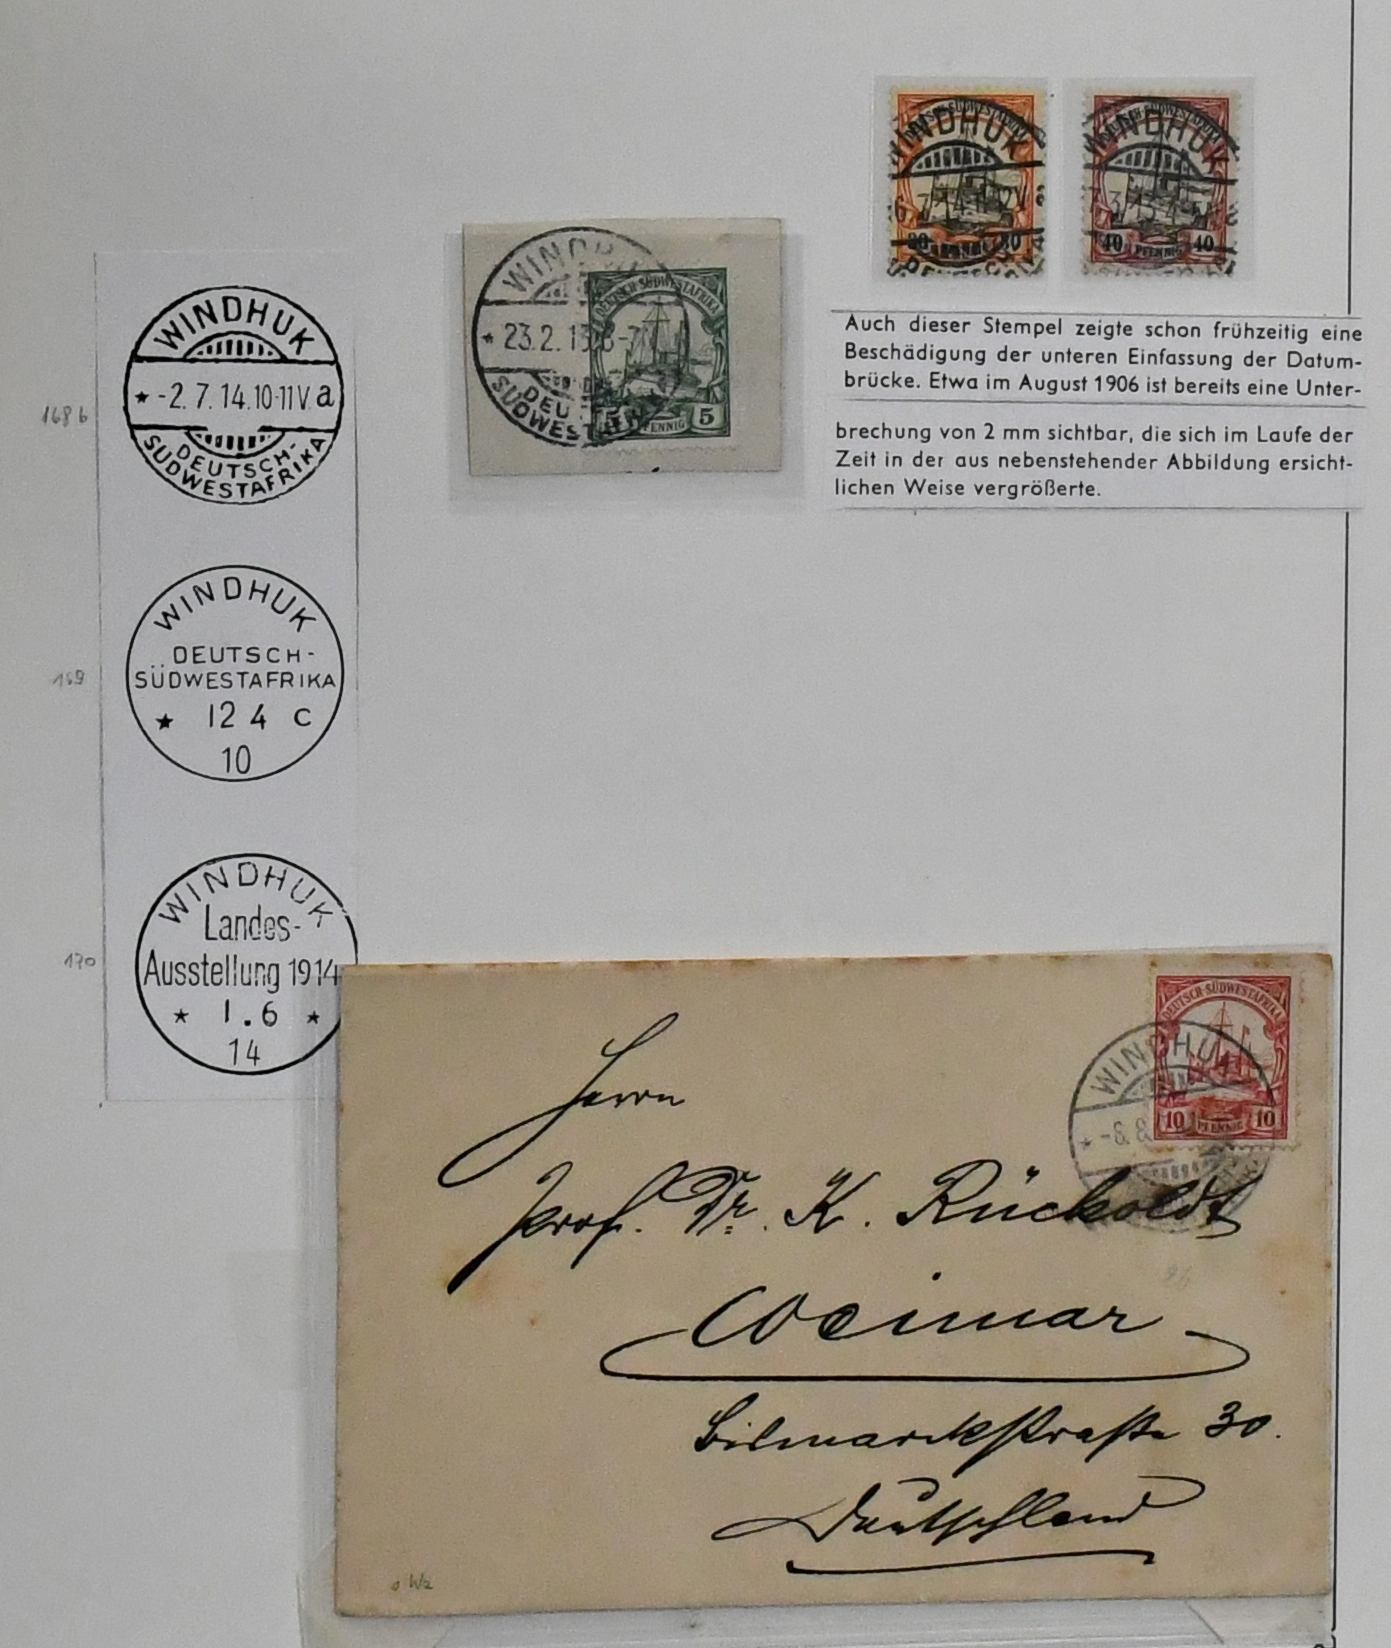 WINDHUK
DEUTSCH-SÜDWESTAFRIKA
30 PFENNIG 30
WINDHUK
DEUTSCH-SÜDWESTAFRIKA
40 PFENNIG 40
WINDHUK
* 23.2.13.6-7N
DEUTSCH-SÜDWESTAFRIKA
PFENNIG 5
Auch dieser Stempel zeigte schon frühzeitig eine
Beschädigung der unteren Einfassung der Datum-
brücke. Etwa im August 1906 ist bereits eine Unter-
brechung von 2 mm sichtbar, die sich im Laufe der
Zeit in der aus nebenstehender Abbildung ersicht-
lichen Weise vergrößerte.
168 b
WINDHUK
* -2.7.14.10-11V. a
DEUTSCH-
SÜDWESTAFRIKA
169
WINDHUK
DEUTSCH-
SÜDWESTAFRIKA
* 12 4 c
10
170
WINDHUK
Landes-
Ausstellung 1914
* 1.6 *
14
DEUTSCH-SÜDWESTAFRIKA
10 PFENNIG 10
WINDHUK
* -8.8
Herrn
Prof. Dr. K. Rückoldt
Weimar
Bismarckstraße 30.
Deutschland